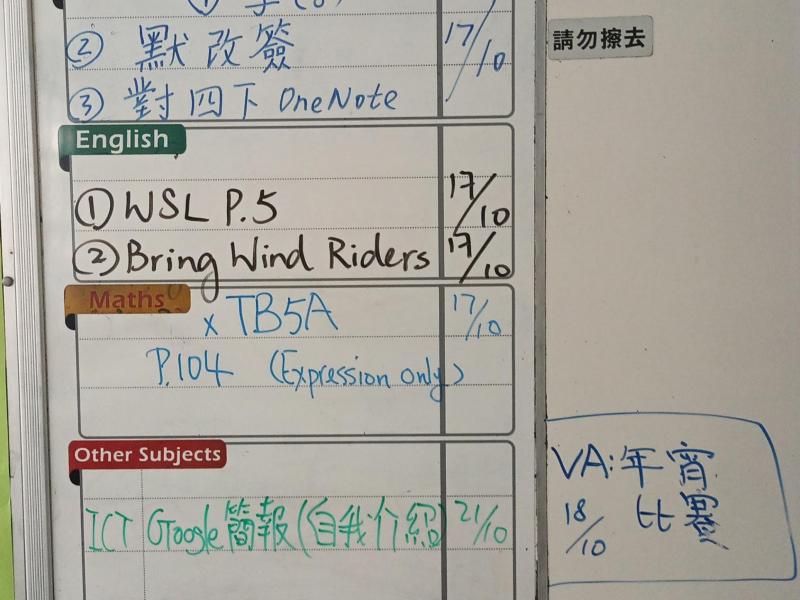 ②默改簽 17/10
③對四下 OneNote
請勿擦去
English
①WSL P.5 17/10
②Bring Wind Riders 17/10
Maths
x TB5A 17/10
P.104 (Expression only)
Other Subjects
ICT Google簡報(自我介紹) 21/10
VA:年宵
18/10 比賽